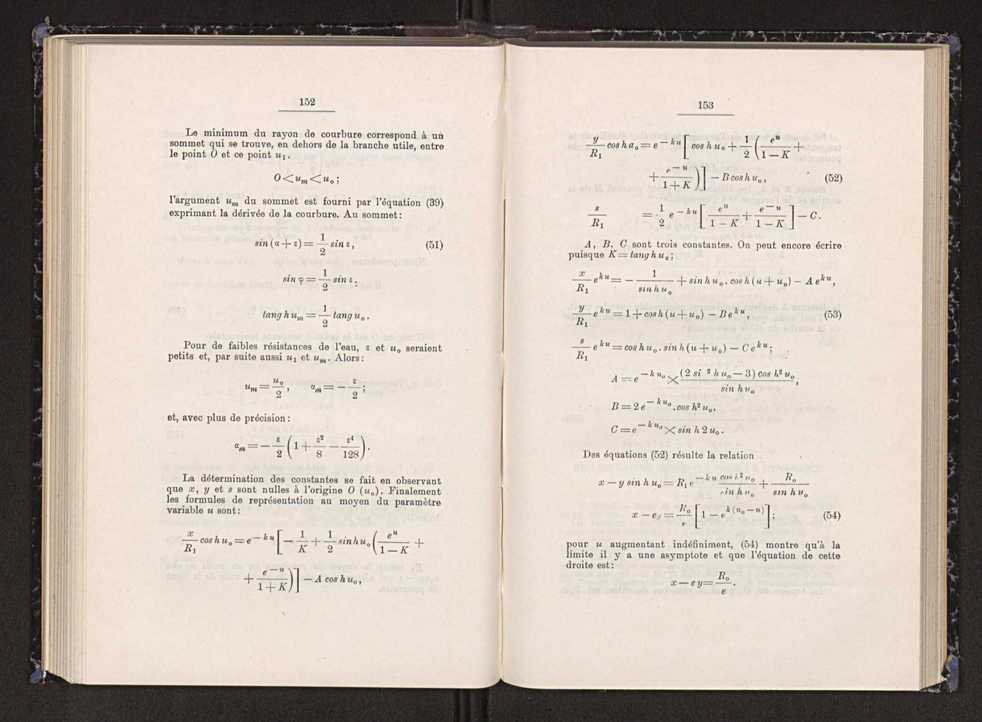 152
Le minimum du rayon de courbure correspond à un
sommet qui se trouve, en dehors de la branche utile, entre
le point O et ce point u₁.
O < uₘ < uₒ;
l'argument uₘ du sommet est fourni par l'équation (39)
exprimant la dérivée de la courbure. Au sommet:
sin (α + ε) = 1/2 sin ε, (51)
sin φ = 1/2 sin ε.
tang h uₘ = 1/2 tang uₒ.
Pour de faibles résistances de l'eau, ε et uₒ seraient
petits et, par suite aussi u₁ et uₘ. Alors:
uₘ = uₒ/2, αₘ = − ε/2;
et, avec plus de précision:
αₘ = − ε/2 (1 + ε²/8 − ε⁴/128).
La détermination des constantes se fait en observant
que x, y et s sont nulles à l'origine O (uₒ). Finalement
les formules de représentation au moyen du paramètre
variable u sont:
x/R₁ cos h uₒ = e^(− ku) [− 1/K + 1/2 sin h uₒ (e^u/(1 − K) +
+ e^(−u)/(1 + K))] − A cos h uₒ,
153
y/R₁ cos h aₒ = e^(− ku) [cos h uₒ + 1/2 (e^u/(1 − K) +
+ e^(−u)/(1 + K))] − B cos h uₒ, (52)
s/R₁ = 1/2 e^(− ku) [e^u/(1 − K) + e^(−u)/(1 − K)] − C.
A, B, C sont trois constantes. On peut encore écrire
puisque K = tang h uₒ;
x/R₁ e^(ku) = − 1/(sin h uₒ) + sin h uₒ. cos h (u + uₒ) − A e^(ku),
y/R₁ e^(ku) = 1 + cos h (u + uₒ) − B e^(ku), (53)
s/R₁ e^(ku) = cos h uₒ. sin h (u + uₒ) − C e^(ku);
A = e^(− k uₒ) × (2 si ² h uₒ − 3) cos h² uₒ/(sin h uₒ),
B = 2 e^(− k uₒ). cos h² uₒ,
C = e^(− k uₒ) × sin h 2 uₒ.
Des équations (52) résulte la relation
x − y sin h uₒ = R₁ e^(− ku) cos h² uₒ/(sin h uₒ) + Rₒ/(sin h uₒ)
x − e y = Rₒ/e [1 − e^(k(uₒ − u))]; (54)
pour u augmentant indéfiniment, (54) montre qu'à la
limite il y a une asymptote et que l'équation de cette
droite est:
x − e y = Rₒ/e.